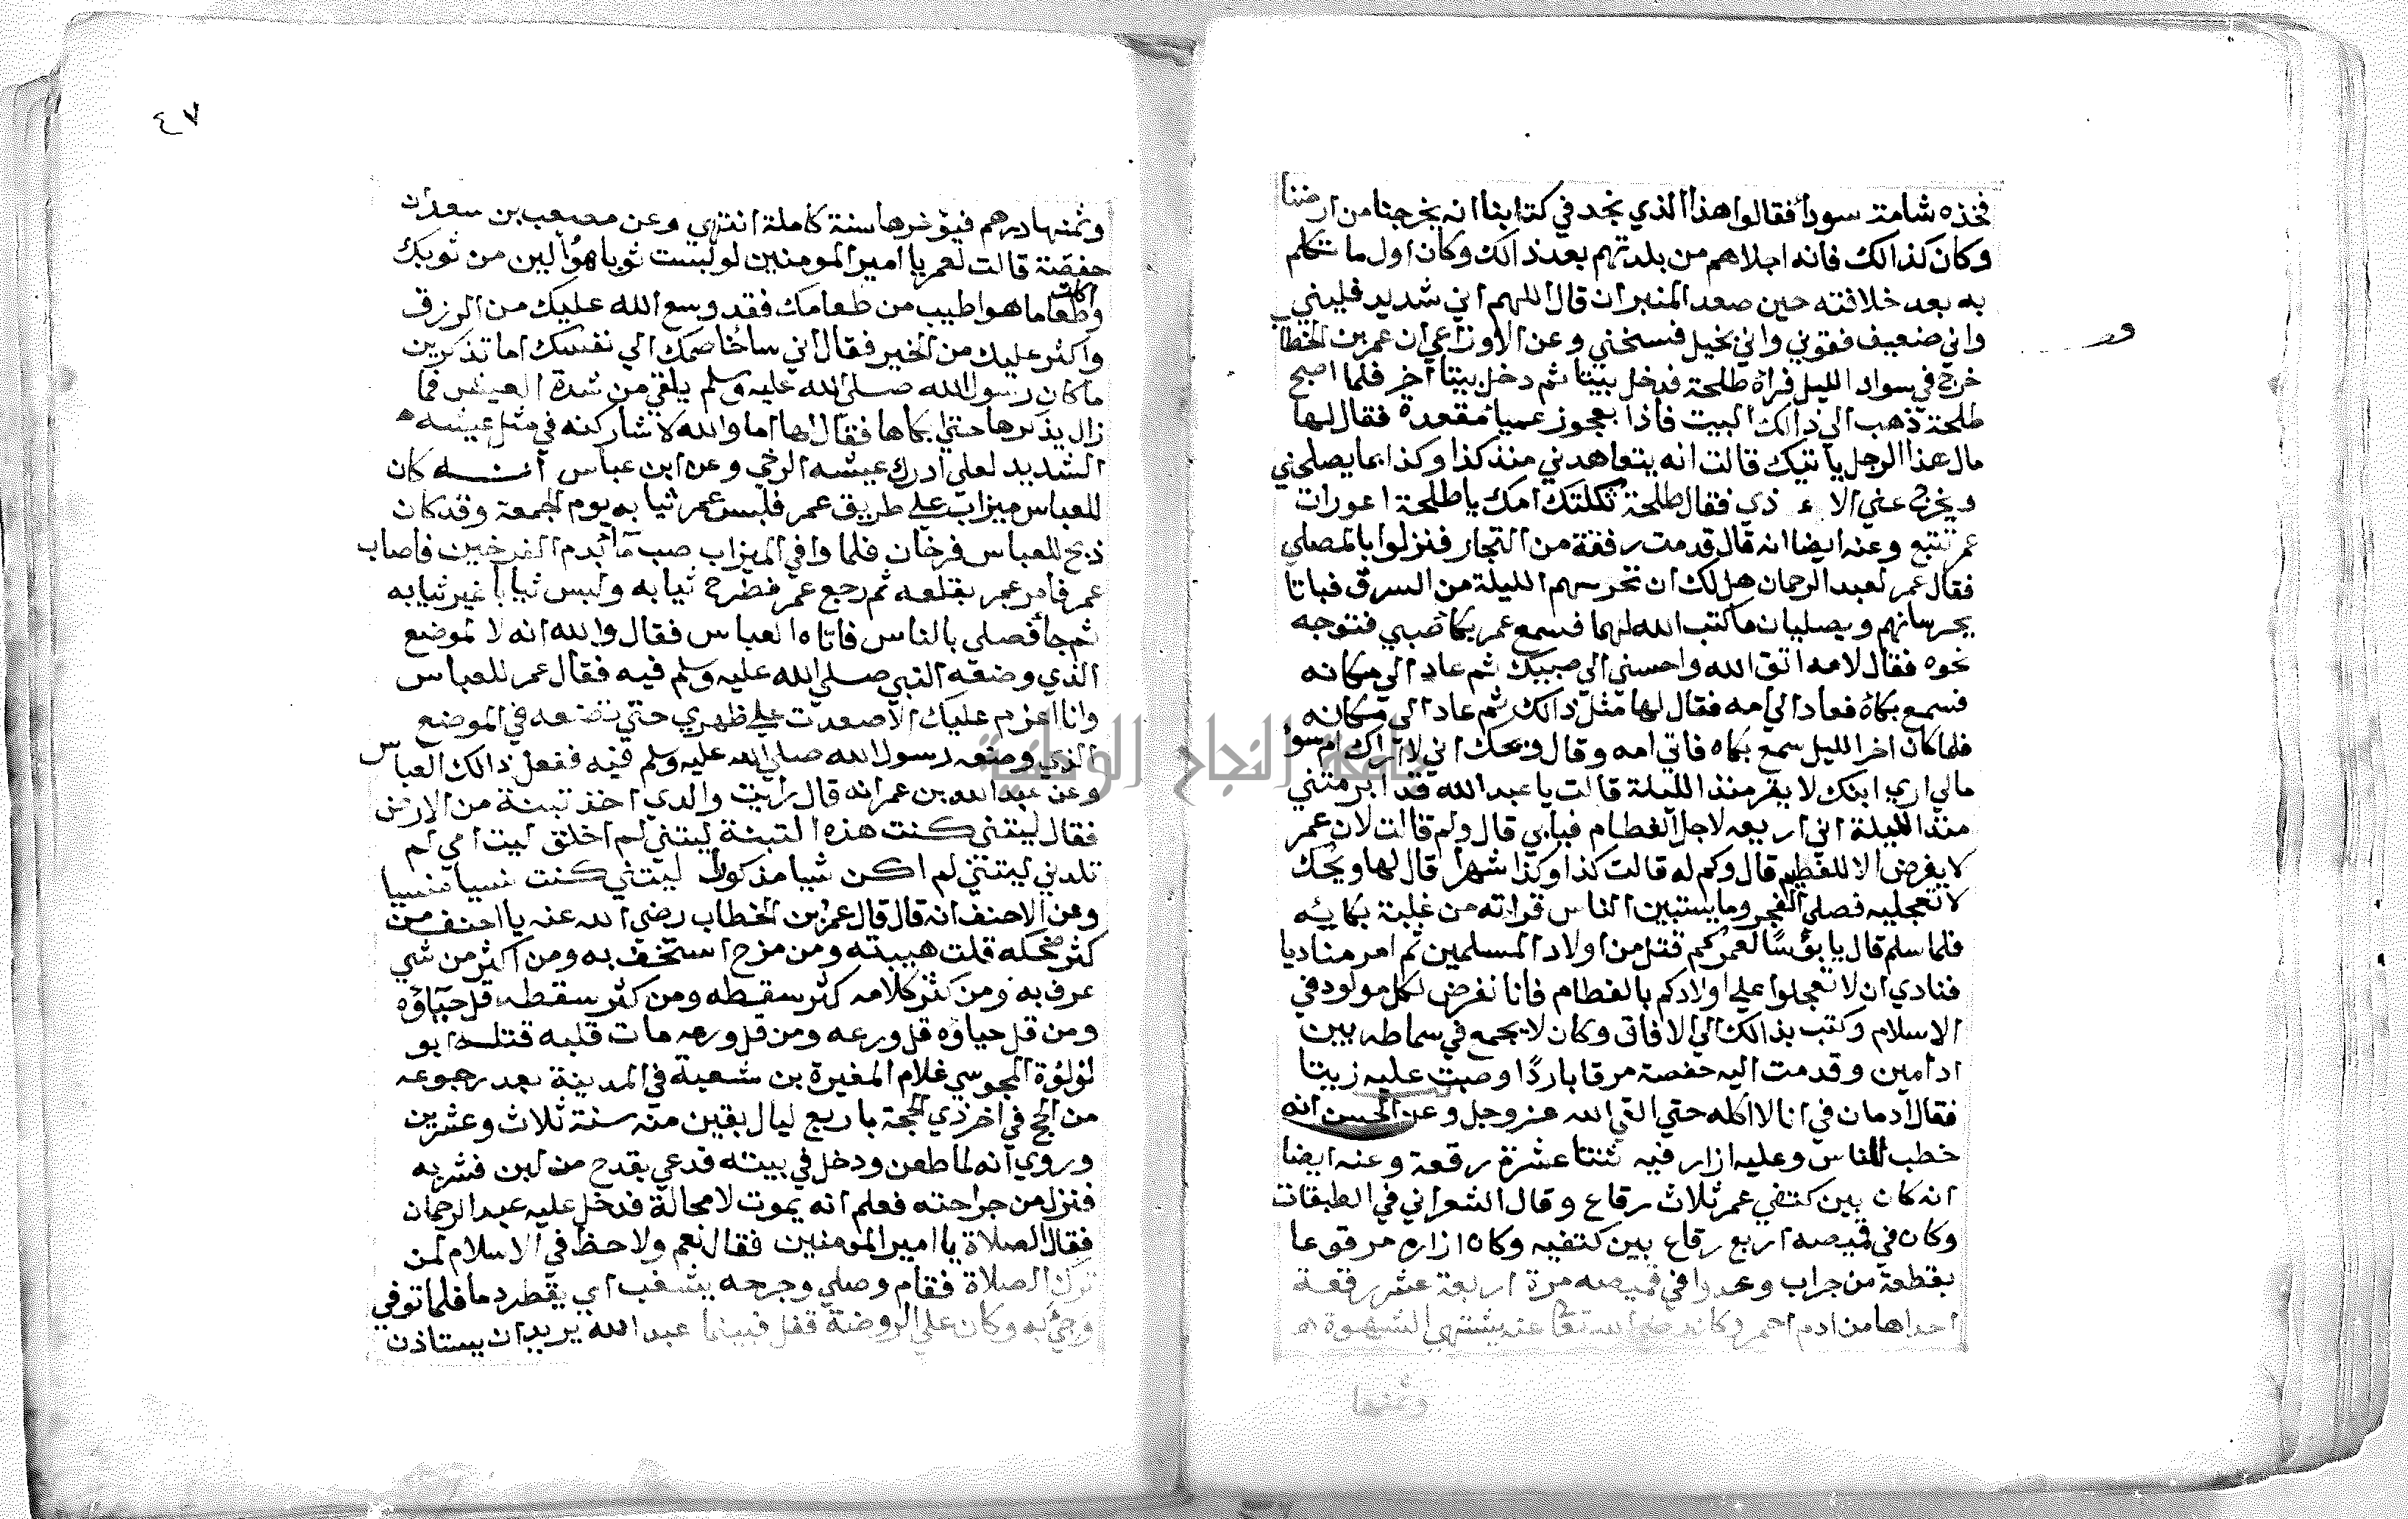 فخذه شامة سودا فقالوا هذا الذي نجد في كتابنا انه يخرجنا من ارضنا
وكان كذالك فانه اجلاهم من بلدتهم بعد ذالك وكان اول ما تكلم
به بعد خلافته حين صعد المنبر ان قال اللهم اني شديد فليني
واني ضعيف فقوني واني بخيل فسخني وعن الاوزاعي ان عمر بن الخطاب
خرج في سواد الليل فراه طلحة فدخل بيتا ثم دخل بيتا اخر فلما اصبح
طلحة ذهب الي ذالك البيت فاذا بعجوز عميا مقعدة فقال لها
ما ل هذا الرجل ياتيك قالت انه يتعاهدني منذ كذا وكذا بما يصلحني
ويخرج عني الا ذي فقال طلحة ثكلتك امك يا طلحة اعورات
عمر تتبع وعنه ايضا انه قال قدمت رفقة من التجار فنزلوا بالمصلي
فقال عمر لعبد الرحمان هل لك ان نحرسهم الليلة من السرق فباتا
يحرسانهم ويصليان ما كتب الله لهما فسمع عمر بكا صبي فتوجه
نحوه فقال لامه اتق الله واحسني الي صبيك ثم عاد الي مكانه
فسمع بكاه فعاد الي امه فقال لها مثل ذالك ثم عاد الي مكانه
فلما كان اخر الليل سمع بكاه فاتي امه وقال ويحك اني لا اراك ام سوء
مالي اري ابنك لا يقر منذ الليلة قالت يا عبد الله قد ابرمتني
منذ الليلة اني اريعه لاجل الفطام فيابي قال ولم قالت لان عمر
لا يفرض الا للفطيم قال وكم له قالت كذا وكذا شهرا قال لها ويحك
لا تعجليه فصلي الفجر وما يستبين الناس قراته من غلبة بكائه
فلما سلم قال يا بؤسا لعمر كم قتل من اولاد المسلمين ثم امر مناديا
فنادي ان لا تعجلوا علي اولادكم بالفطام فانا نفرض لكل مولود في
الاسلام وكتب بذالك الي الافاق وكان لا يجمع في سماطه بين
ادامين وقدمت اليه حفصة مرقا باردا وصبت عليه زيتا
فقال ادمان في انا لا اكله حتي القي الله عز وجل وعن الحسن انه
خطب الناس وعليه ازار فيه ثنتا عشرة رقعة وعنه ايضا
انه كان بين كتفي عمر ثلاث رقاع وقال الشعراني في الطبقات
وكان في قميصه اربع رقاع بين كتفيه وكان ازاره مرقوعا
بقطعة من جراب وعدوا في قميصه مرة اربعة عشر رقعة
احداها من ادم احمر وكان رضي الله تعا عنه يشتهي الشهوة
وثمنها
٤٧
وثمنها درهم فيؤخرها سنة كاملة انتهي وعن مصعب بن سعد ان
حفصة قالت لعمر يا امير المومنين لو لبست ثوبا هو الين من ثوبك
واكلت
وطعاما هو اطيب من طعامك فقد وسع الله عليك من الرزق
واكثر عليك من الخير فقال اني ساخاصمك الي نفسك اما تذكرين
ما كان رسول الله صلي الله عليه وسلم يلقي من شدة العيش فما
زال يذكرها حتي ابكاها فقال لها اما والله لاشاركنه في مثل عيشه
الشديد لعلي ادرك عيشه الرخي وعن ابن عباس انه كان
للعباس ميزاب علي طريق عمر فلبس عمر ثيابه يوم الجمعة وقد كان
ذبح للعباس فرخان فلما وافي الميزاب صب ما بدم الفرخين فاصاب
عمر فامر عمر بقلعه ثم رجع عمر فطرح ثيابه ولبس ثيابا غير ثيابه
ثم جا فصلي بالناس فاتاه العباس فقال والله انه لا لموضع
الذي وضعه النبي صلي الله عليه وسلم فيه فقال عمر للعباس
وانا اعزم عليك الا صعدت علي ظهري حتي تضعه في الموضع
الذي وضعه رسول الله صلي الله عليه وسلم فيه ففعل ذالك العباس
وعن عبد الله بن عمر انه قال رايت والدي اخذ تبنة من الارض
فقال ليتني كنت هذه التبنة ليتني لم اخلق ليت امي لم
تلدني ليتني لم اكن شيا مذكورا ليتني كنت نسيا منسيا
وعن الاحنف انه قال قال عمر بن الخطاب رضي الله عنه يا احنف من
كثر ضحكه قلت هيبته ومن مزح استخف به ومن اكثر من شي
عرف به ومن كثر كلامه كثر سقطه ومن كثر سقطه قل حياؤه
ومن قل حياؤه قل ورعه ومن قل ورعه مات قلبه قتله ابو
لؤلؤة المجوسي غلام المغيرة بن شعبة في المدينة بعد رجوعه
من الحج في اخر ذي الحجة باربع ليال بقين منه سنة ثلاث وعشرين
وروي انه لما طعن ودخل في بيته قد عي بقدح من لبن فشربه
فنزل من جراحته فعلم انه يموت لا محالة فدخل عليه عبد الرحمان
فقال الصلاة يا امير المومنين فقال نعم ولا حظ في الاسلام لمن
ترك الصلاة فقام وصلي وجرحه يشغب اي يقطر دما فلما توفي
وجئ به وكان علي الروضة قفل فبينما عبد الله يريد ان يستاذن